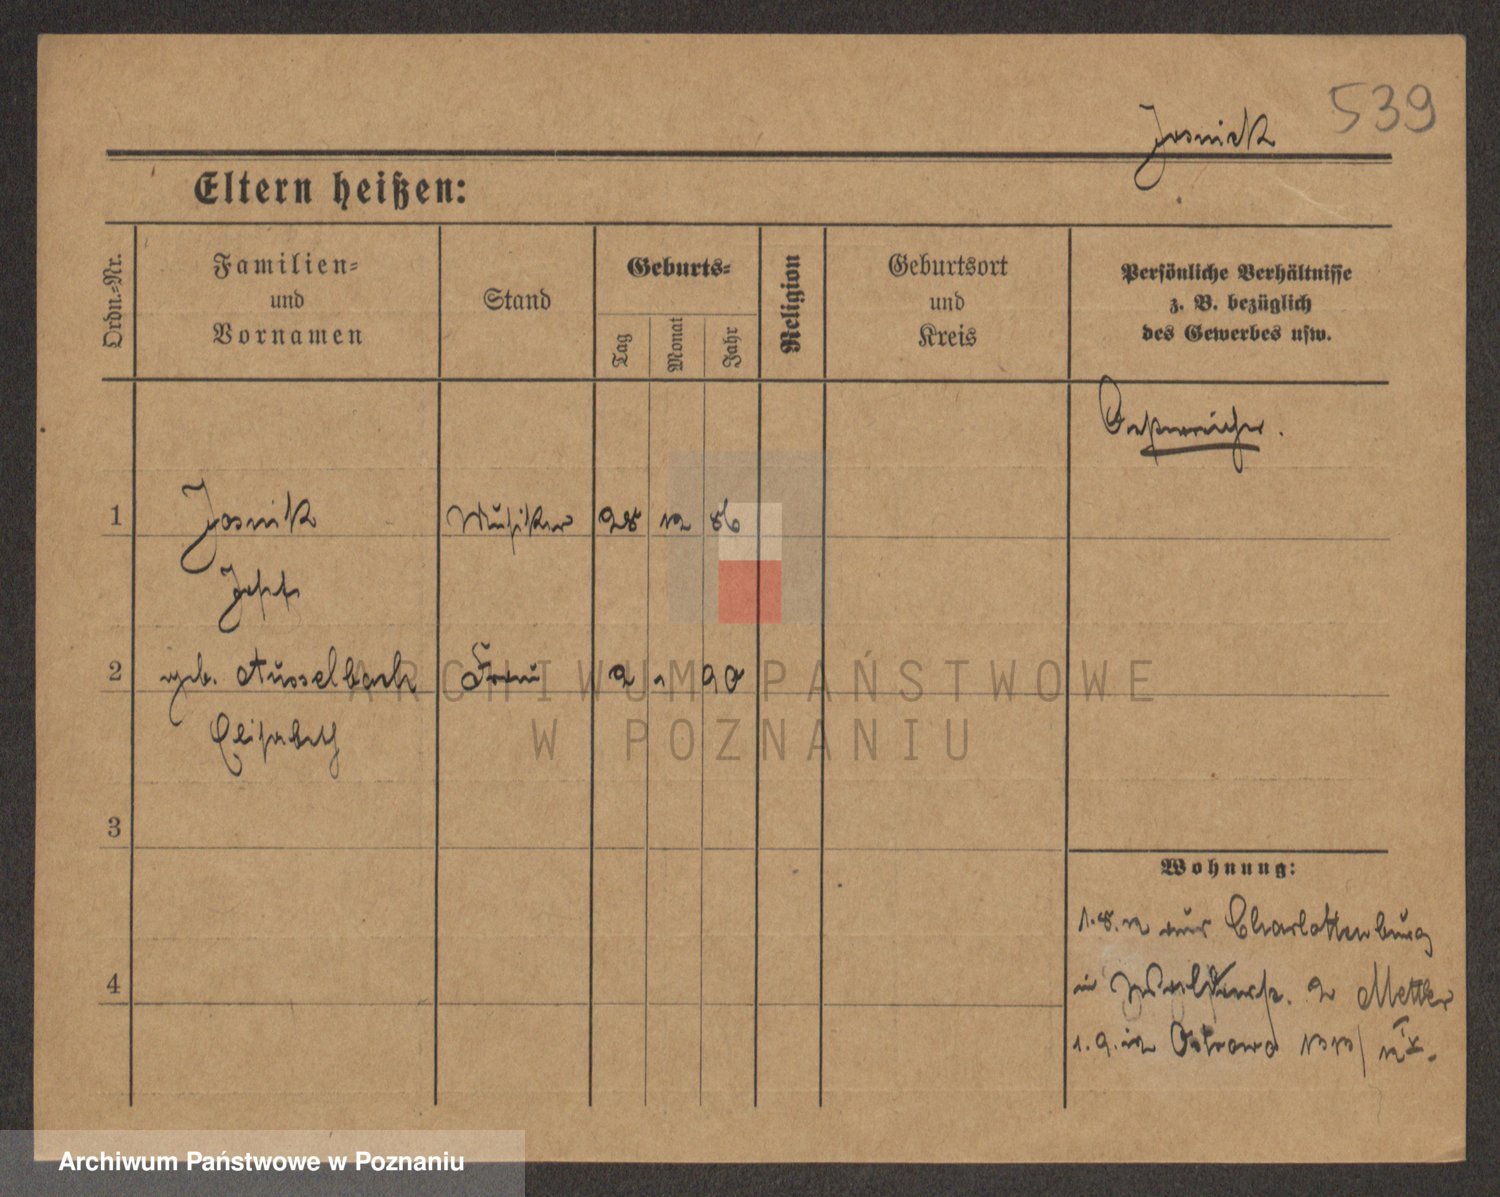 539
Josnik
Eltern heißen:
Ordn.-Nr.
Familien-
und
Vornamen
Stand
Geburts-
Tag
Monat
Jahr
Religion
Geburtsort
und
Kreis
Persönliche Verhältnisse
z. B. bezüglich
des Gewerbes usw.
Oesterreicher.
1 Josnik Musiker 28 12 86
Josef
2 geb. Ausselbach Frau 2 1 90
Elisabeth
3
4
Wohnung:
1.8.12 aus Charlottenburg
in 2 Mettler
1.9.12 Ostrowo
ARCHIWUM PAŃSTWOWE
W POZNANIU
Archiwum Państwowe w Poznaniu